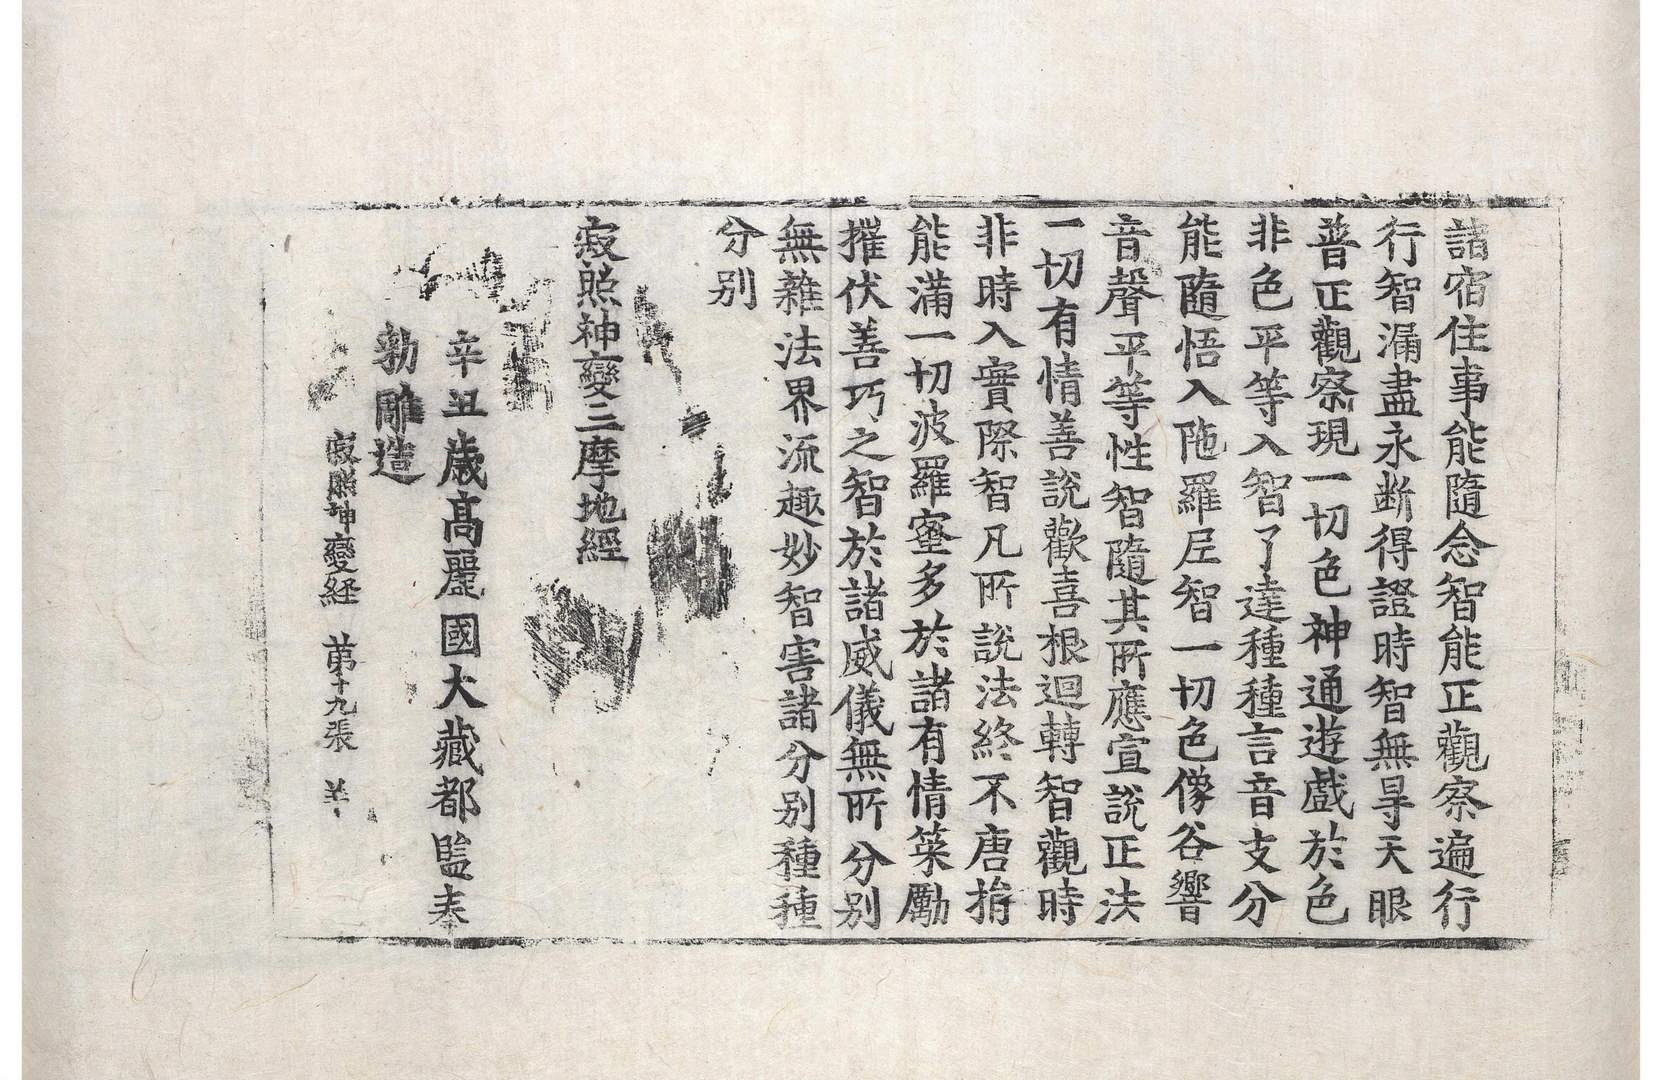 諸宿住事能隨念智能正觀察遍行
行智漏盡永断得證時智無㝵天眼
普正觀察現一切色神通遊戲於色
非色平等入智了達種種言音支分
能隨悟入陁羅尼智一切色像谷響
音聲平等性智隨其所應宣說正法
一切有情善說歡喜根迴轉智觀時
非時入實際智凡所說法終不唐捐
能滿一切波羅蜜多於諸有情策勵
摧伏善巧之智於諸威儀無所分别
無雜法界流趣妙智害諸分别種種
分别
寂照神變三摩地經
辛丑歲高麗國大藏都監奉
勑雕造
寂照神變経　苐十九張　羊